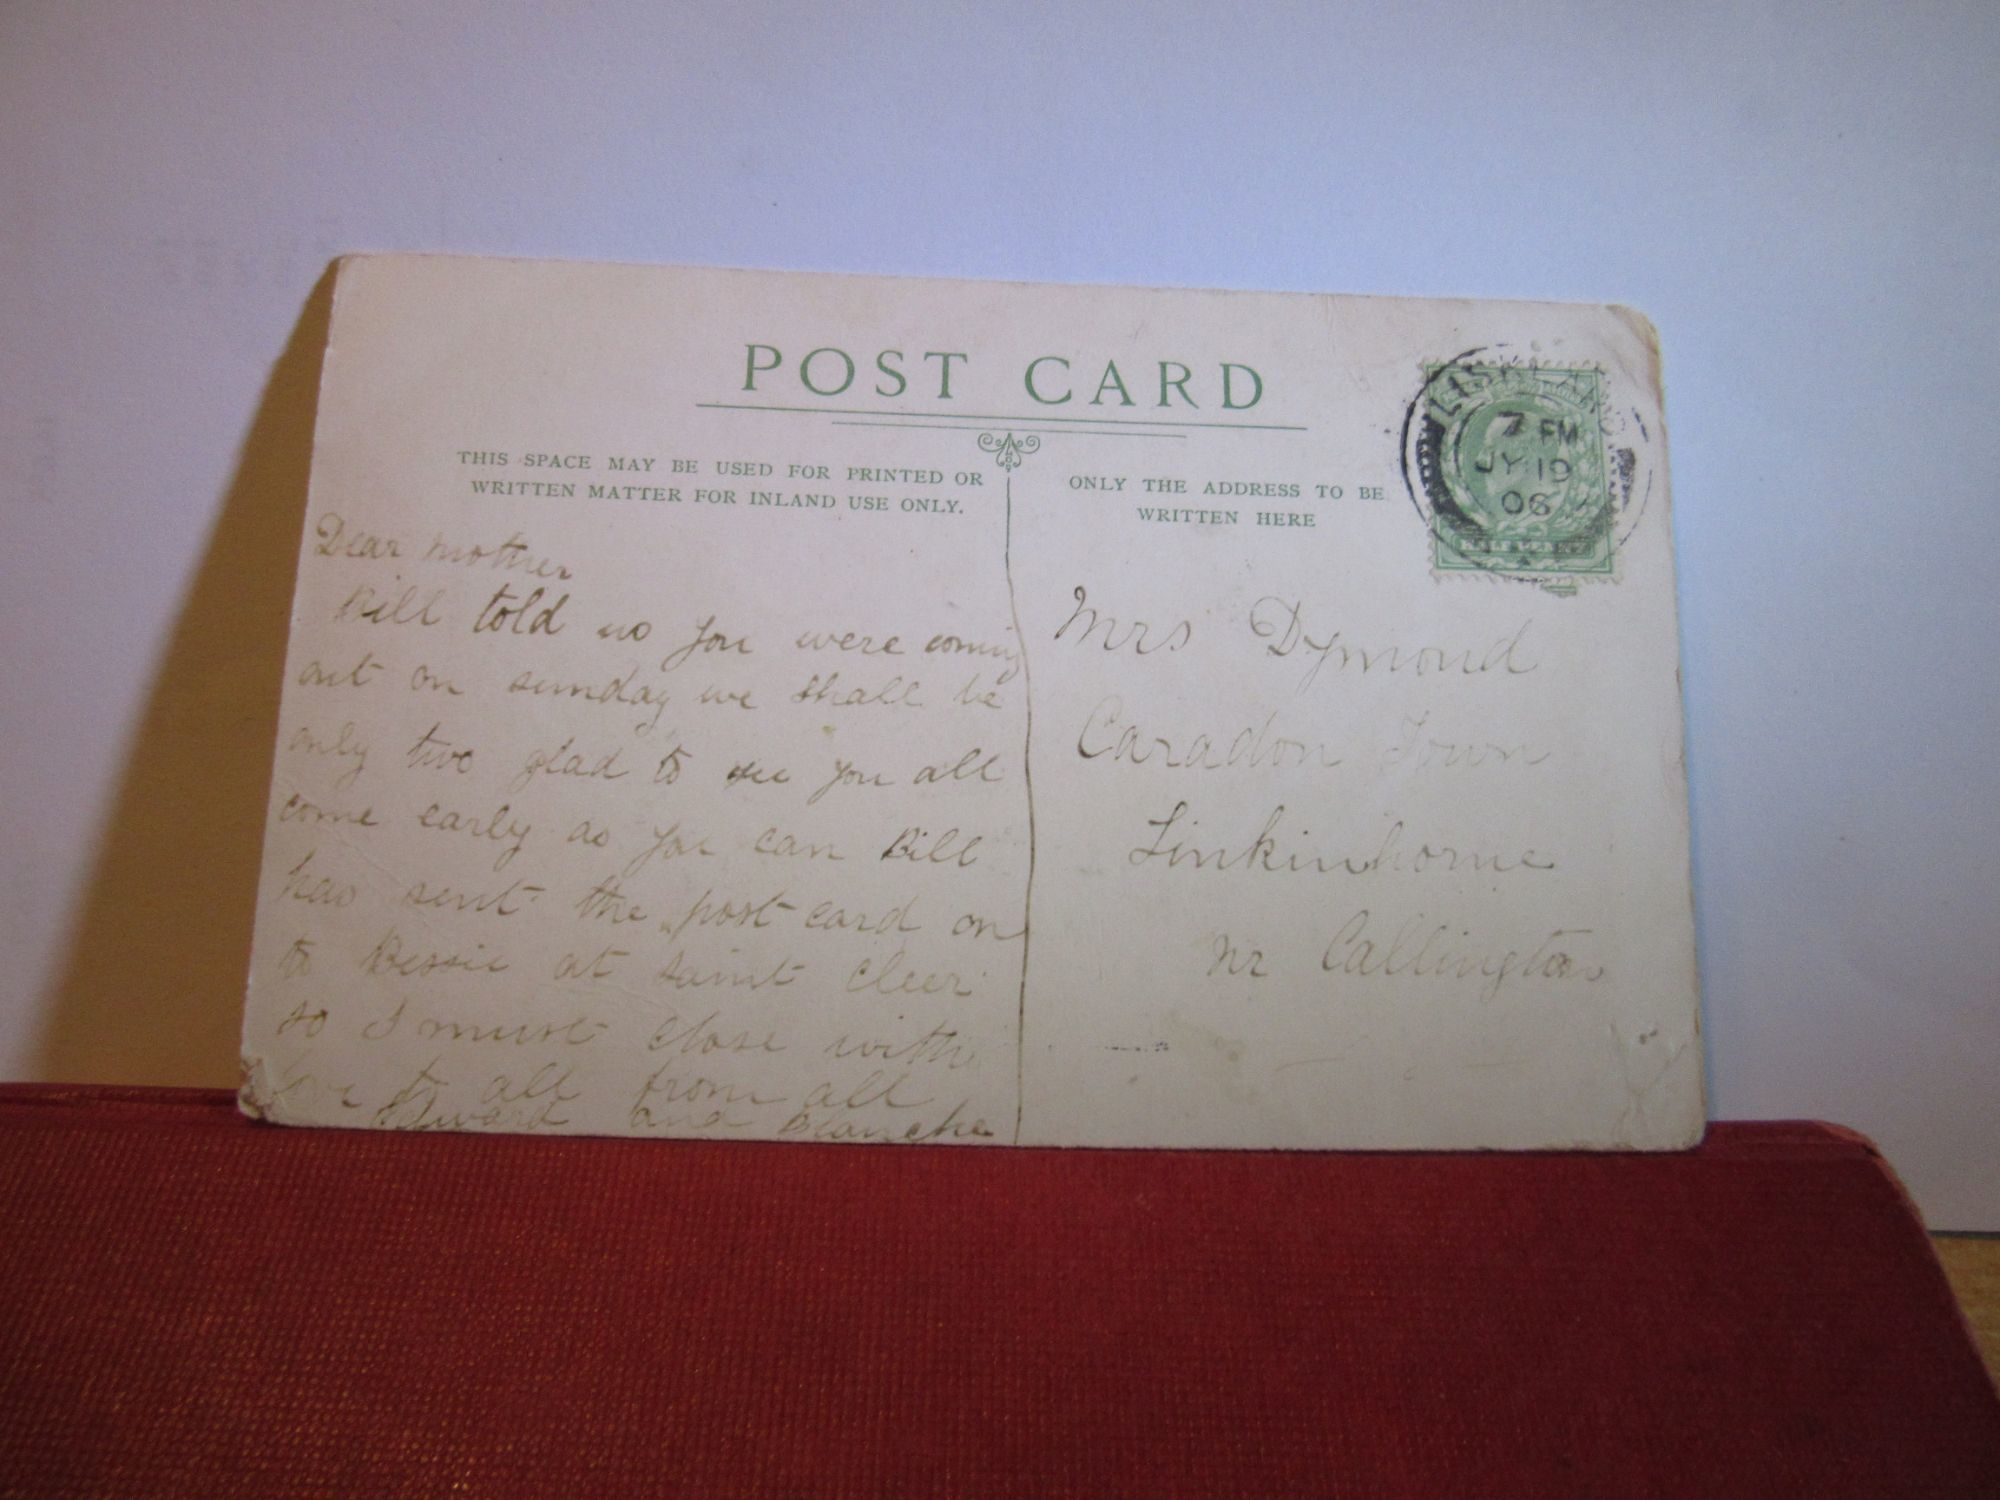 POST CARD
THIS SPACE MAY BE USED FOR PRINTED OR
WRITTEN MATTER FOR INLAND USE ONLY.
Dear Mother
Bill told us you were coming
out on sunday we shall be
only two glad to see you all
come early as you can Bill
has sent the post card on
to Bessie at saint cleer
so I must close with
love to all from all
Edward and Blanche
ONLY THE ADDRESS TO BE
WRITTEN HERE
LISKEARD
7 PM
JY 19
06
HALFPENNY
Mrs Dymond
Caradon Town
Linkinhorne
nr Callington